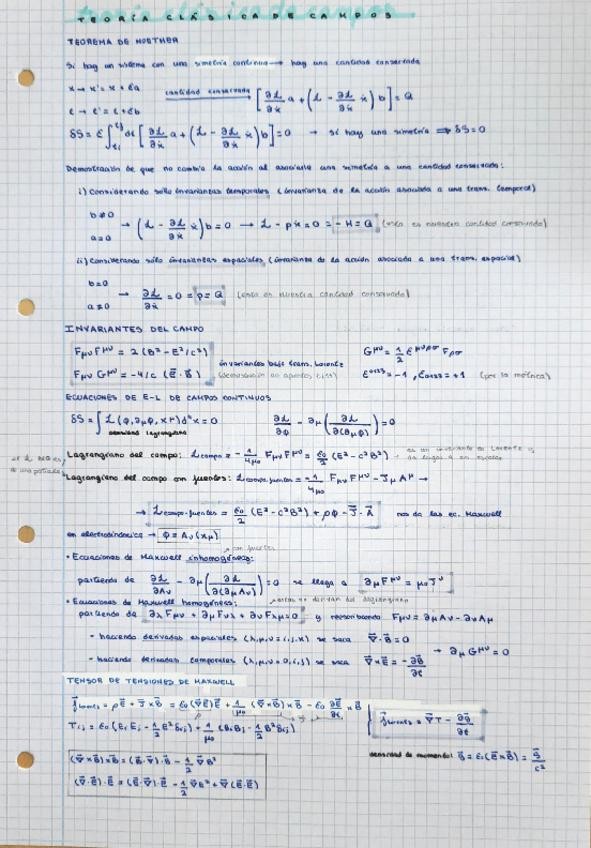 TEORÍA CLÁSICA DE CAMPOS
TEOREMA DE NOETHER
Si hay un sistema con una simetría continua → hay una cantidad conservada
x → x' = x + εa   cantidad conservada → [∂L/∂ẋ a + (L - ∂L/∂ẋ ẋ) b] = Q
t → t' = t + εb
δS = ε ∫ dt [∂L/∂ẋ a + (L - ∂L/∂ẋ ẋ) b] = 0 → si hay una simetría ⇒ δS = 0
Demostración de que no cambia la acción al asociarle una simetría a una cantidad conservada:
i) Considerando sólo invariantes temporales (invarianza de la acción asociada a una trans. temporal)
b≠0
a=0 → (L - ∂L/∂ẋ ẋ) b = 0 → L - pẋ = 0 = -H = Q (esta es nuestra cantidad conservada)
ii) Considerando sólo invariantes espaciales (invarianza de la acción asociada a una trans. espacial)
b=0
a≠0 → ∂L/∂ẋ = 0 = p = Q (esta es nuestra cantidad conservada)
INVARIANTES DEL CAMPO
Fμν F^μν = 2 (B² - E²/c²)
Fμν G^μν = -4/c (E⃗ · B⃗)
invariantes bajo trans. Lorentz
G^μν = 1/2 ε^μνρσ Fρσ
ε^0123 = -1, ε0123 = +1 (por la métrica)
ECUACIONES DE E-L DE CAMPOS CONTINUOS
δS = ∫ L (φ, ∂μφ, x^μ) d⁴x = 0   ∂L/∂φ - ∂μ (∂L/∂(∂μφ)) = 0
densidad lagrangiana
Lagrangiano del campo: L campo = -1/4μ₀ Fμν F^μν = ε₀/2 (E² - c²B²) → es un invariante de Lorentz
Lagrangiano del campo con fuentes: L campo-fuentes = -1/4μ₀ Fμν F^μν - Jμ A^μ →
→ L campo-fuentes = ε₀/2 (E² - c²B²) + ρφ - J⃗ · A⃗   nos da las ec. Maxwell
en electrodinámica → φ = Aν (xμ)
con fuentes
• Ecuaciones de Maxwell inhomogéneas:
partiendo de ∂L/∂Aν - ∂μ (∂L/∂(∂μAν)) = 0 se llega a ∂μ F^μν = μ₀ J^ν
• Ecuaciones de Maxwell homogéneas: → estas no derivan del lagrangiano
partiendo de ∂λ Fμν + ∂μ Fνλ + ∂ν Fλμ = 0 y recordando Fμν = ∂μAν - ∂νAμ
- haciendo derivadas espaciales (λ,μ,ν = i,j,k) se saca ∇⃗ · B⃗ = 0
- haciendo derivadas temporales (λ,μ,ν = 0,i,j) se saca ∇⃗ × E⃗ = -∂B⃗/∂t → ∂μ G^μν = 0
TENSOR DE TENSIONES DE MAXWELL
f⃗ Lorentz = ρE⃗ + J⃗ × B⃗ = ε₀ (∇⃗E⃗)E⃗ + 1/μ₀ (∇⃗ × B⃗) × B⃗ - ε₀ ∂E⃗/∂t × B⃗
f⃗ Lorentz = ∇⃗T - ∂g⃗/∂t
Tij = ε₀ (Ei Ej - 1/2 E² δij) + 1/μ₀ (Bi Bj - 1/2 B² δij)
densidad de momento: g⃗ = ε₀ (E⃗ × B⃗) = S⃗/c²
(∇⃗ × B⃗) × B⃗ = (B⃗ · ∇⃗) · B⃗ - 1/2 ∇⃗B²
(∇⃗ · E⃗) · E⃗ = (E⃗ · ∇⃗) · E⃗ - 1/2 ∇⃗E² + ∇⃗ (E⃗ · E⃗)